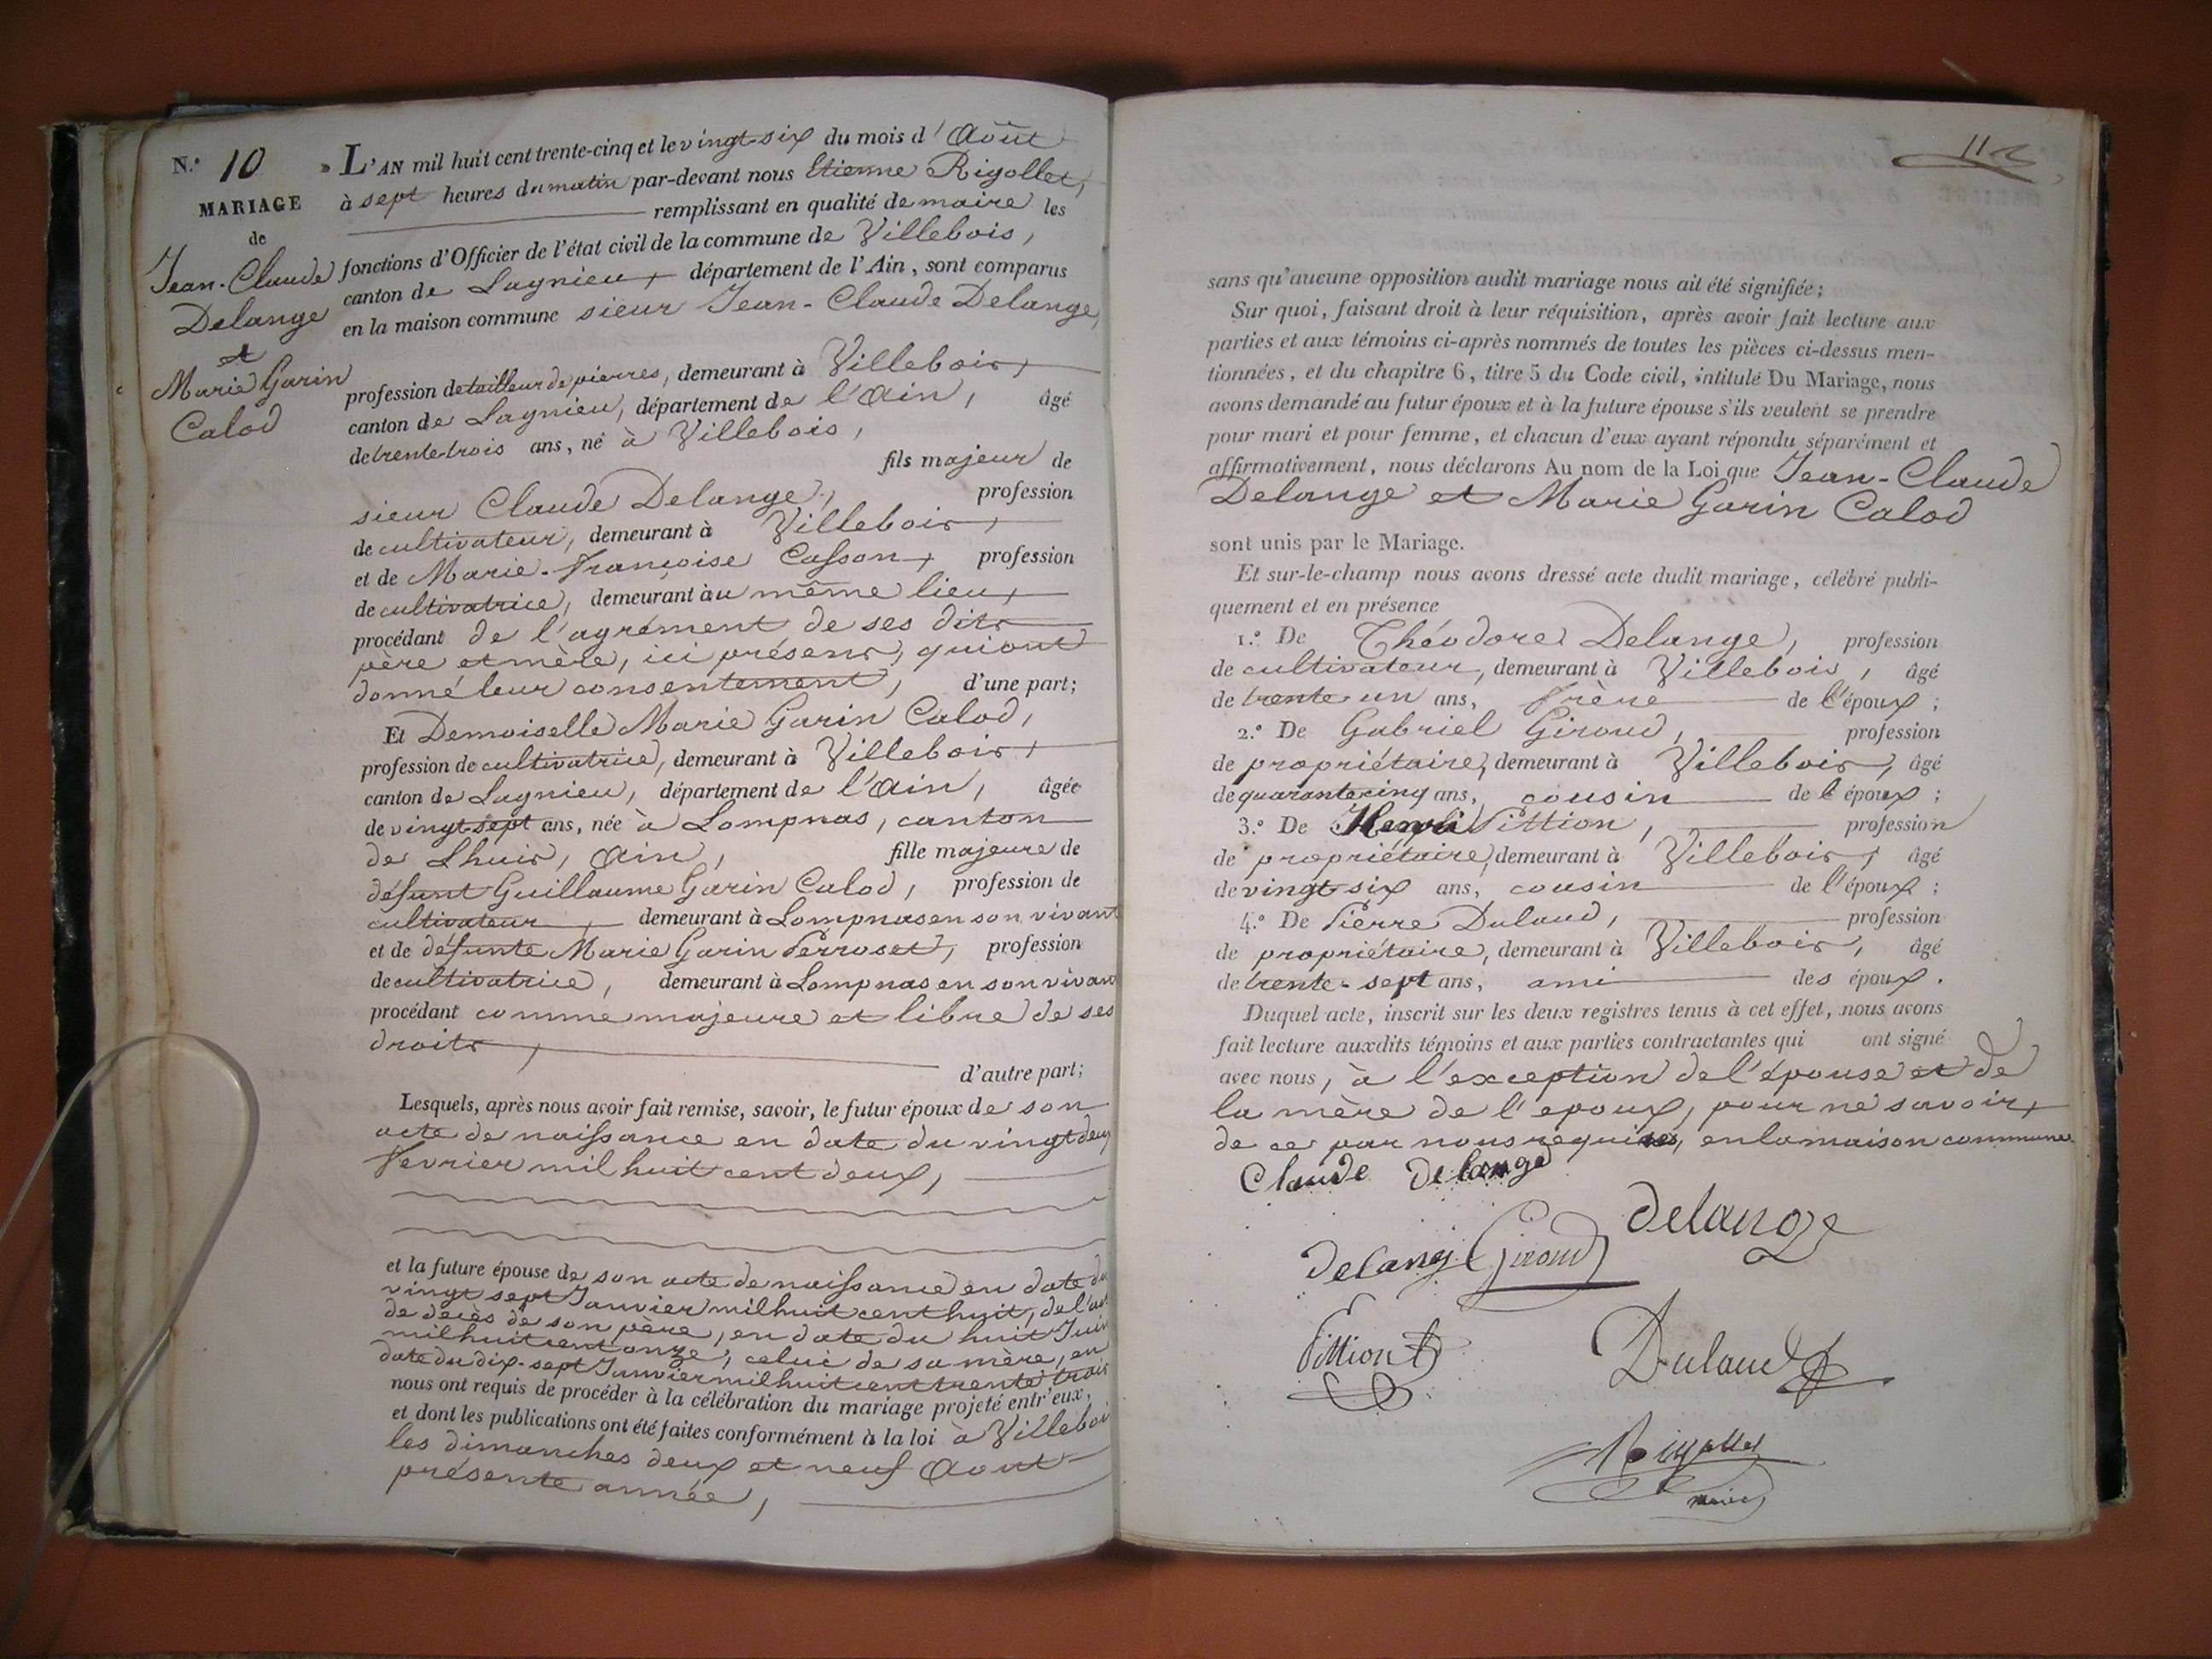 N.º 10
MARIAGE
de
Jean-Claude
Delange
et
Marie Garin
Calod
L'AN mil huit cent trente-cinq et le vingt-six du mois d'Août
à sept heures du matin par-devant nous Etienne Rigollet,
remplissant en qualité de maire les
fonctions d'Officier de l'état civil de la commune de Villebois,
canton de Lagnieu, département de l'Ain, sont comparus
en la maison commune sieur Jean-Claude Delange,
profession de tailleur de pierres, demeurant à Villebois,
canton de Lagnieu, département de l'Ain, âgé
de trente-trois ans, né à Villebois,
fils majeur de
sieur Claude Delange, profession
de cultivateur, demeurant à Villebois,
et de Marie-Françoise Casson, profession
de cultivatrice, demeurant au même lieu,
procédant de l'agrément de ses dits
père et mère, ici présens, qui ont
donné leur consentement, d'une part;
Et Demoiselle Marie Garin Calod,
profession de cultivatrice, demeurant à Villebois,
canton de Lagnieu, département de l'Ain, âgée
de vingt-sept ans, née à Lompnas, canton
de Lhuis, Ain, fille majeure de
défunt Guillaume Garin Calod, profession de
cultivateur, demeurant à Lompnas en son vivant
et de défunte Marie Garin Perroset, profession
de cultivatrice, demeurant à Lompnas en son vivan
procédant comme majeure et libre de ses
droits,
d'autre part;
Lesquels, après nous avoir fait remise, savoir, le futur époux de son
acte de naissance en date du vingt deux
Fevrier mil huit cent deux,
et la future épouse de son acte de naissance en date du
vingt sept Janvier mil huit cent huit, de l'act
de decès de son père, en date du huit Juin
mil huit cent onze, celui de sa mère, en
date du dix-sept Janvier mil huit cent trente trois
nous ont requis de procéder à la célébration du mariage projeté entr'eux,
et dont les publications ont été faites conformément à la loi à Villeboi
les dimanches deux et neuf Aout
présente année,
sans qu'aucune opposition audit mariage nous ait été signifiée;
Sur quoi, faisant droit à leur réquisition, après avoir fait lecture aux
parties et aux témoins ci-après nommés de toutes les pièces ci-dessus men-
tionnées, et du chapitre 6, titre 5 du Code civil, intitulé Du Mariage, nous
avons demandé au futur époux et à la future épouse s'ils veulent se prendre
pour mari et pour femme, et chacun d'eux ayant répondu séparément et
affirmativement, nous déclarons Au nom de la Loi que Jean-Claude
Delange et Marie Garin Calod
sont unis par le Mariage.
Et sur-le-champ nous avons dressé acte dudit mariage, célébré publi-
quement et en présence
1.º De Théodore Delange, profession
de cultivateur, demeurant à Villebois, âgé
de trente-un ans, frère de l'époux;
2.º De Gabriel Giroud, profession
de propriétaire, demeurant à Villebois, âgé
de quarante cinq ans, cousin de l'époux;
3.º De Henri Pittion, profession
de propriétaire, demeurant à Villebois, âgé
de vingt-six ans, cousin de l'époux;
4.º De Pierre Dulaud, profession
de propriétaire, demeurant à Villebois, âgé
de trente-sept ans, ami des époux.
Duquel acte, inscrit sur les deux registres tenus à cet effet, nous avons
fait lecture auxdits témoins et aux parties contractantes qui ont signé
avec nous, à l'exception de l'épouse et de
la mère de l'epoux, pour ne savoir,
de ce par nous requises, en la maison commune.
Claude Delange
delange
delange Giroud
Pittion
Dulaud
Rigollet
maire